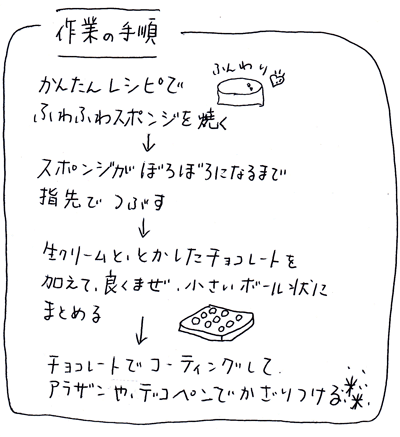 作業の手順
かんたんレシピで
ふんわり
ふわふわスポンジを焼く
↓
スポンジがぼろぼろになるまで
指先でつぶす
↓
生クリームと、とかしたチョコレートを
加えて、良くまぜ、小さいボール状に
まとめる
↓
チョコレートでコーティングして、
アラザンや、デコペンでかざりつける